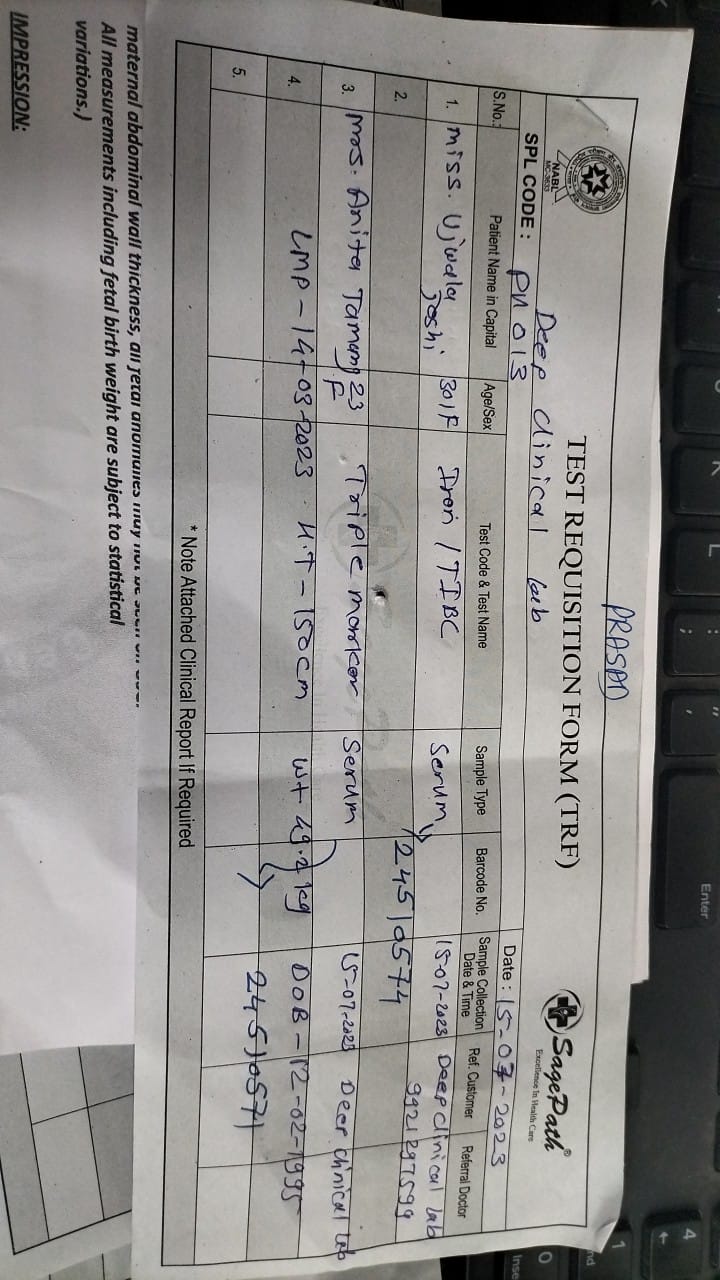 PRASAD
TEST REQUISITION FORM (TRF)
NABL
MC-3633
SagePath®
Excellence In Health Care
Deep clinical lab
SPL CODE : PN 013
Date : 15-07-2023
S.No. Patient Name in Capital Age/Sex Test Code & Test Name Sample Type Barcode No. Sample Collection Date & Time Ref. Customer Referral Doctor
1. Miss. Ujwala Joshi 30/F Iron / TIBC Serum 15-07-2023 Deep clinical lab
9921297599
2. 24510574
3. Mrs. Anita Tamang 23 F Triple marker Serum 15-07-2023 Deep clinical lab
4. LMP - 14-03-2023 H.T - 150cm wt 49.2 kg DOB - 12-02-1995
5. 24510571
* Note Attached Clinical Report If Required
maternal abdominal wall thickness, all fetal anomalies may not be
All measurements including fetal birth weight are subject to statistical
variations.)
IMPRESSION:
Enter